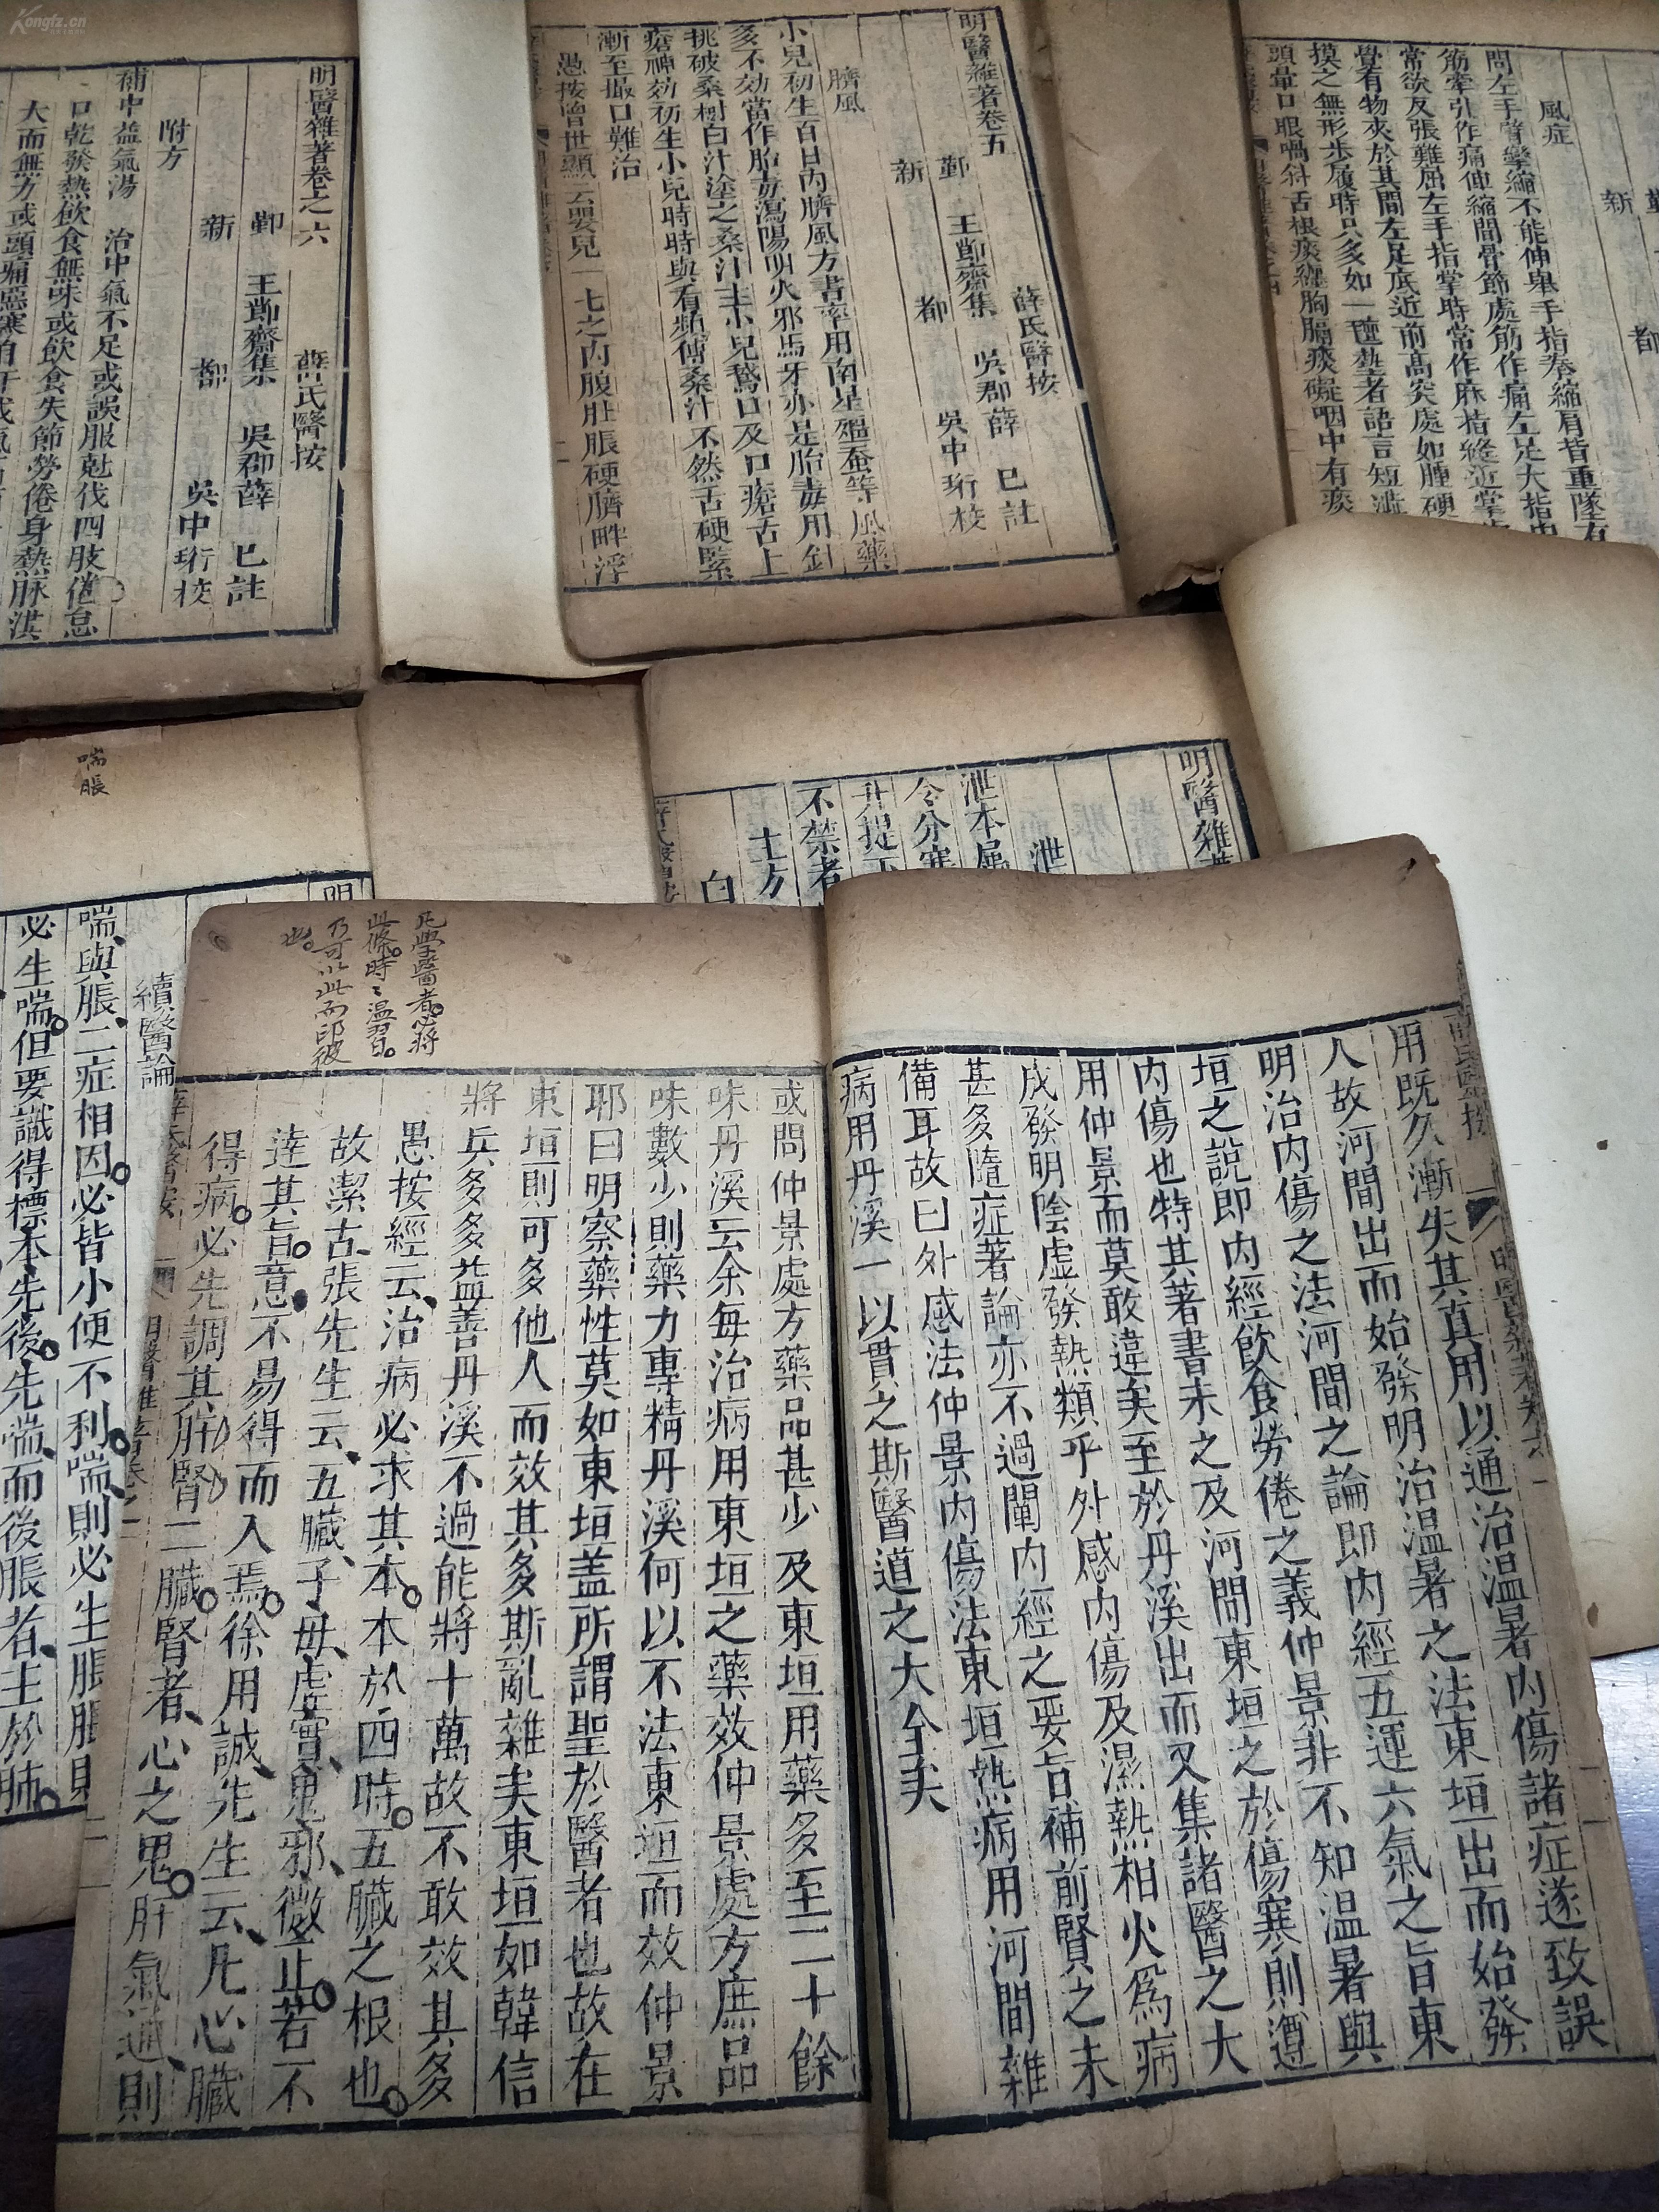 Kongfz.cn
明醫雜著卷之六
薛氏醫按
鄞 王節齋集 吳郡薛 已註
新 都 吳中珩校
附方
補中益氣湯 治中氣不足或誤服尅伐四肢倦怠
口乾發熱飲食無味或飲食失節勞倦身熱脉洪
大而無力或頭痛惡寒自汗或氣
明醫雜著卷五
薛氏醫按
鄞 王節齋集 吳郡薛 已註
新 都 吳中珩校
臍風
小兒初生百日內臍風方書率用南星殭蚕等風藥
多不効當作胎毒瀉陽明火邪馬牙亦是胎毒用針
挑破桑樹白汁塗之桑汁主小兒鵞口及口瘡舌上
瘡神効初生小兒時時與看頻傅桑汁不然舌硬緊
漸至撮口難治
愚按曾世顯云嬰兒一七之內腹肚脹硬臍畔浮
新 都
風症
問左手臂攣縮不能伸舉手指拳縮肩背重墜有
筋牽引作痛伸縮間骨節處筋作痛左足大指
常欲反張難屈左手指掌時常作麻指縫近掌
覺有物夾於其間左足底近前高突處如腫硬
摸之無形步履時只多如一
者語言短澁
頭暈口眼喎斜舌根痰纏胸膈痰礙咽中有痰
明醫雜
泄
泄本屬
令分寒
升提下
不禁者
土方
白
喘脹
續醫論
喘與脹二症相因必皆小便不利喘則必生脹脹則
必生喘但要識得標本先後先喘而後脹者主於肺
用既久漸失其真用以通治温暑內傷諸症遂致誤
人故河間出而始發明治温暑之法東垣出而始發
明治內傷之法河間之論即內經五運六氣之旨東
垣之說即內經飲食勞倦之義仲景非不知温暑與
內傷也特其著書未之及河間東垣之於傷寒則遵
用仲景而莫敢違矣至於丹溪出而又集諸醫之大
成發明陰虛發熱類乎外感內傷及濕熱相火為病
甚多隨症著論亦不過闡內經之要旨補前賢之未
備耳故曰外感法仲景內傷法東垣熱病用河間雜
病用丹溪一以貫之斯醫道之大全矣
凡學醫者必將
此條時〻温習
乃可以此而印彼
也
或問仲景處方藥品甚少及東垣用藥多至二十餘
味丹溪云余每治病用東垣之藥效仲景處方庶品
味數少則藥力專精丹溪何以不法東垣而效仲景
耶曰明察藥性莫如東垣盖所謂聖於醫者也故在
東垣則可多他人而效其多斯亂雜矣東垣如韓信
將兵多多益善丹溪不過能將十萬故不敢效其多
愚按經云治病必求其本本於四時五臟之根也
故潔古張先生云五臟子母虛實鬼邪微正若不
達其旨意不易得而入焉徐用誠先生云凡心臟
得病必先調其肝腎二臟腎者心之鬼肝氣通則